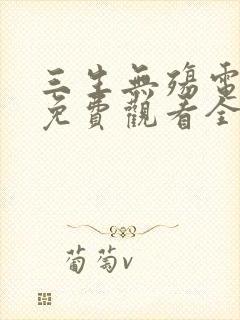 三生無殤電
免費觀看全
葡萄v